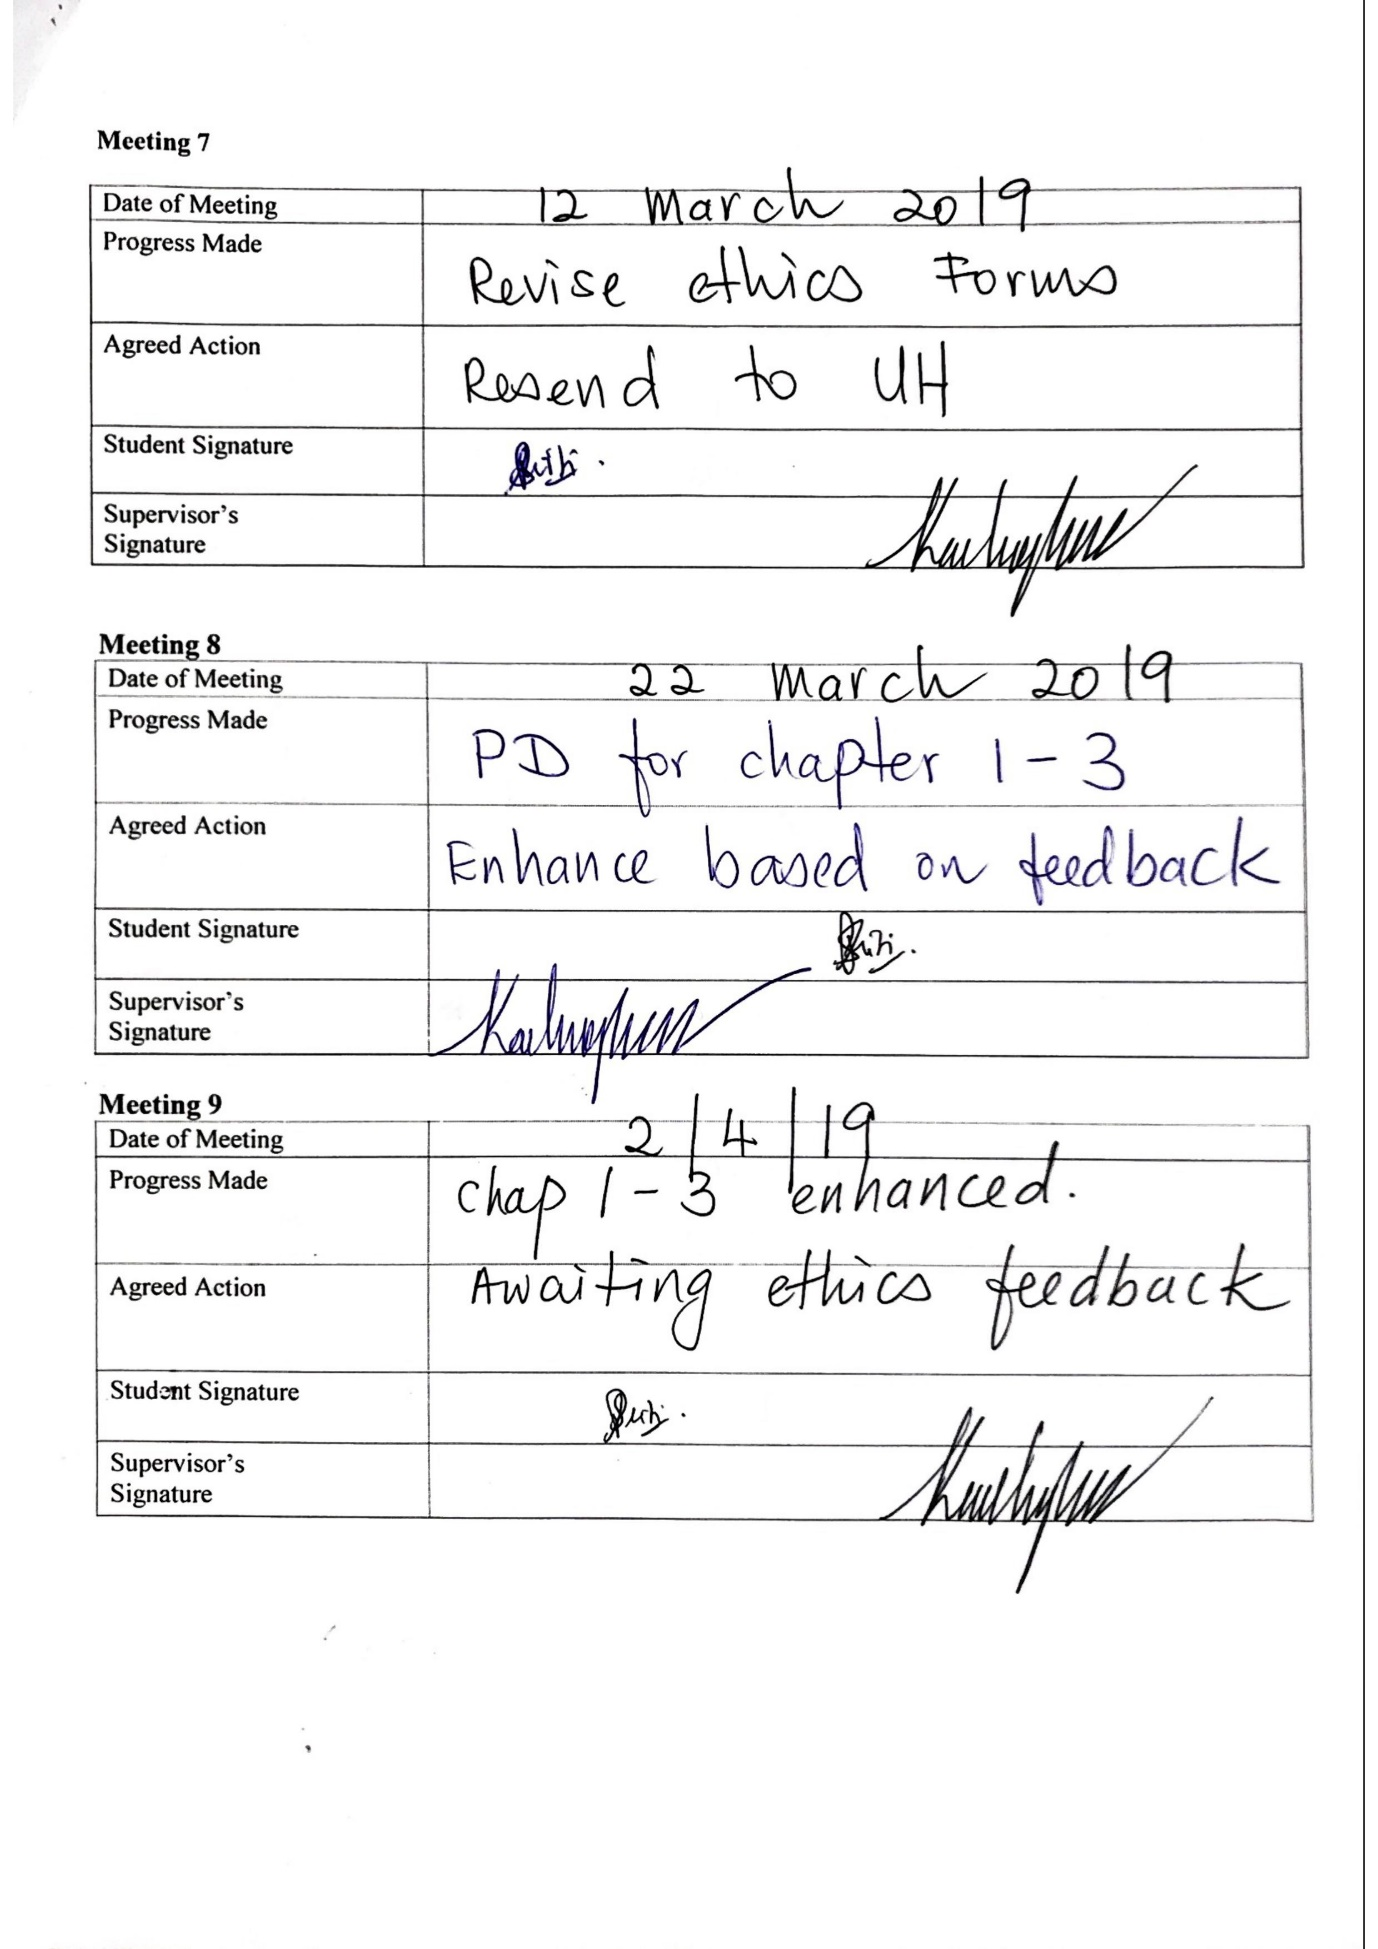 Meeting 7
Date of Meeting 12 March 2019
Progress Made Revise ethics Forms
Agreed Action Resend to UH
Student Signature
Supervisor's
Signature
Meeting 8
Date of Meeting 22 March 2019
Progress Made PD for chapter 1-3
Agreed Action Enhance based on feedback
Student Signature
Supervisor's
Signature
Meeting 9
Date of Meeting 2/4/19
Progress Made Chap 1-3 enhanced.
Agreed Action Awaiting ethics feedback
Student Signature
Supervisor's
Signature